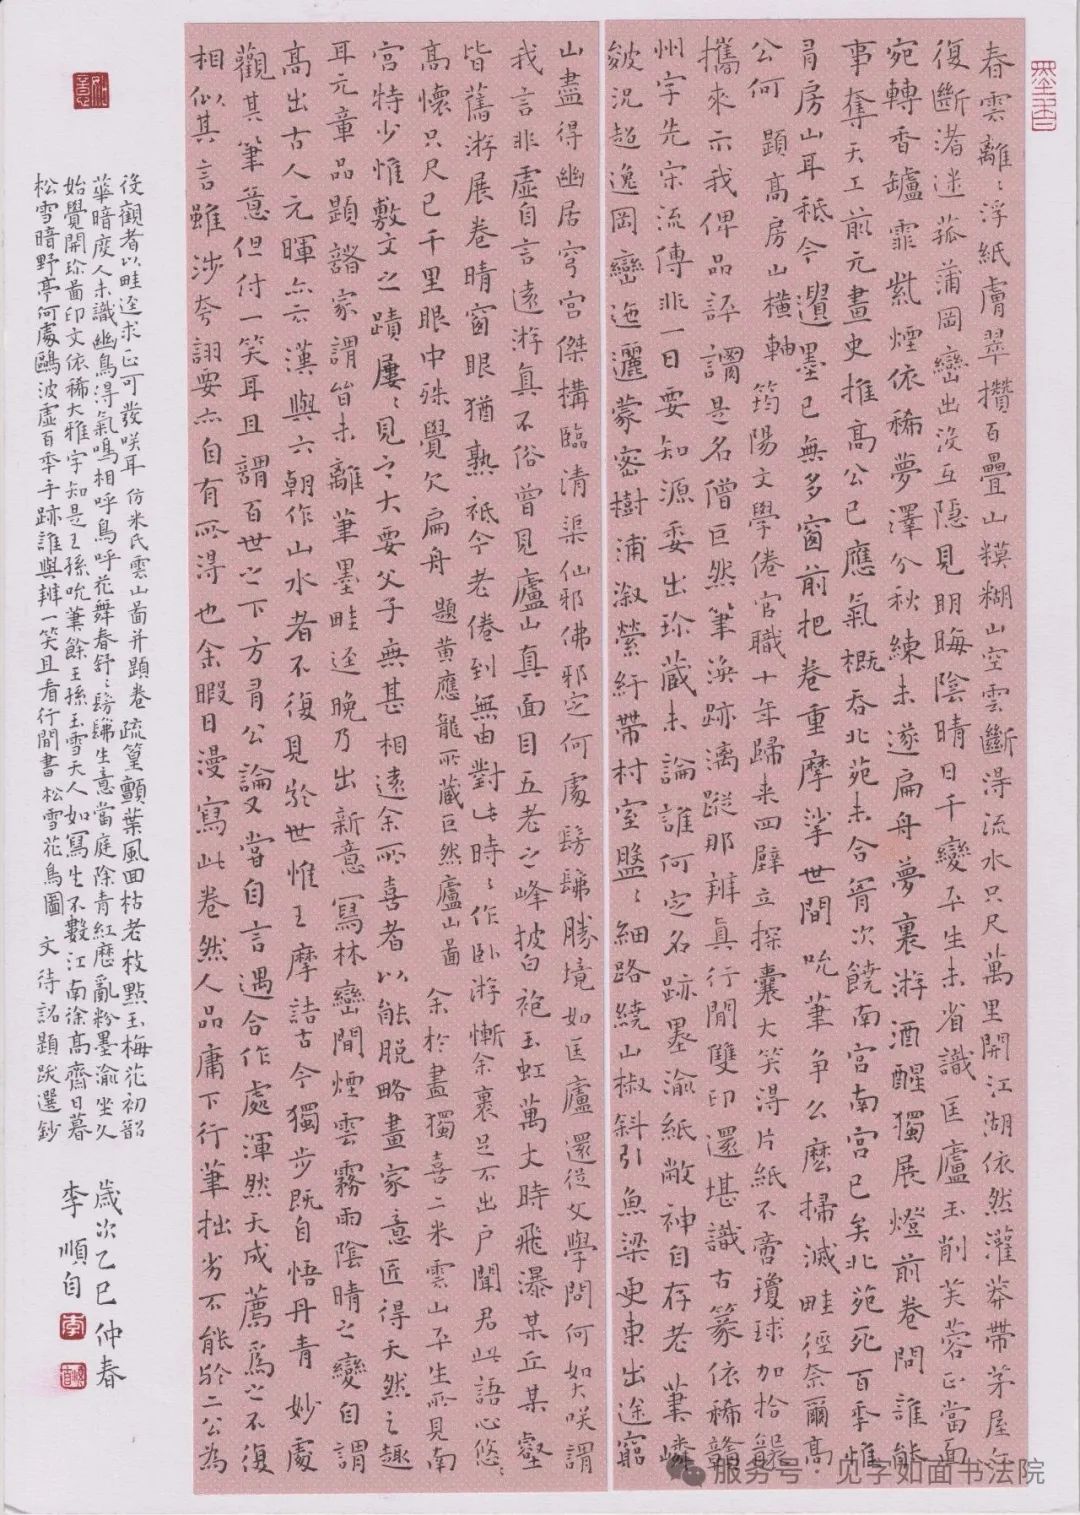 墨香
春雲離〻浮紙膚翠攢百疊山糢糊山空雲斷得流水只尺萬里開江湖依然灌莽帶茅屋
復斷渚迷菰蒲岡巒出沒互隱見明晦陰晴日千變平生未省識匡廬玉削芙蓉正當面
宛轉香罏霏紫煙依稀夢澤兮秋練未遂扁舟夢裏游酒醒獨展燈前卷問誰能
事奪天工前元畫史推高公已應氣概吞北苑未合胥次饒南宮南宮已矣北苑死百季惟
有房山耳秪今遺墨已無多窗前把卷重摩挲世間吮筆爭么麼掃滅畦徑奈爾高
公何 題高房山橫軸 筠陽文學倦官職十年歸来四壁立探囊大笑得片紙不啻瓊球加拾襲
攜來示我俾品評謂是名僧巨然筆渙跡漓蹤那辨真行閒雙印還堪識古篆依稀贛
州字先宋流傳非一日要知源委出珍藏未論誰何定名跡墨渝紙敝神自存老筆嶙
皴況超逸岡巒迤邐蒙密樹浦溆縈紆帶村室盤〻細路繞山椒斜引魚梁更東出途窮
山盡得幽居穹宮傑構臨清渠仙邪佛邪定何處髣髴勝境如匡廬還從文學問何如大咲謂
我言非虛自言遠游真不俗曾見廬山真面目五老之峰披白袍玉虹萬丈時飛瀑某丘某壑
皆舊游展卷晴窗眼猶熟祇今老倦到無由對此時〻作臥游慚余裹足不出戶聞君此語心悠〻
高懷只尺已千里眼中殊覺欠扁舟 題黃應龍所藏巨然廬山圖 余於畫獨喜二米雲山平生所見南
宮特少惟敷文之蹟屢〻見之大要父子無甚相遠余所喜者以能脫略畫家意匠得天然之趣
耳元章品題諸家謂皆未離筆墨畦逕晚乃出新意寫林巒間煙雲霧雨陰晴之變自謂
高出古人元暉亦云漢與六朝作山水者不復見於世惟王摩詰古今獨步既自悟丹青妙處
觀其筆意但付一笑耳且謂百世之下方有公論又嘗自言遇合作處渾然天成薦為之不復
相似其言雖涉夸詡要亦自有所得也余暇日漫寫此卷然人品庸下行筆拙劣不能於二公為
役觀者以畦逕求正可發咲耳 仿米氏雲山圖并題卷 疏篁顫葉風回枯老枝點玉梅花初韶
華暗度人未識幽鳥得氣鳴相呼鳥呼花舞春舒〻髣髴生意當庭除青紅歷亂粉墨渝坐久
始覺開珍圖印文依稀大雅字知是王孫吮筆餘王孫玉雪天人如寫生不數江南徐高齋日暮
松雪暗野亭何處鷗波虛百季手跡誰與辨一笑且看行間書 松雪花鳥圖 文待詔題跋選鈔
歲次乙巳仲春
李順自
服务号·见字如面书法院